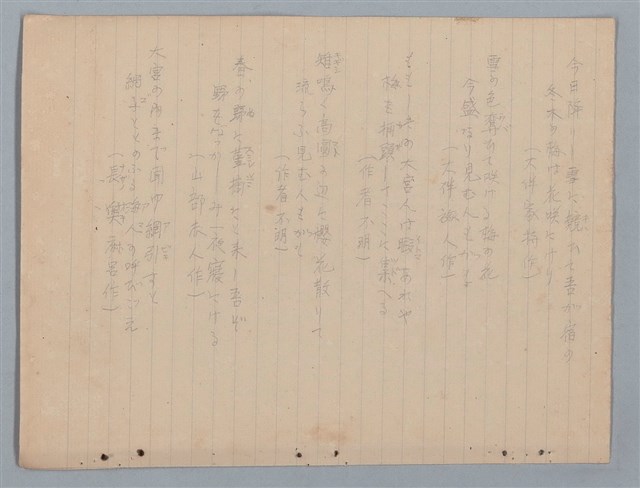 今日降りし雪に競ひて吾が宿の
冬木の梅は花咲きけり
(大伴家持作)
雪の色を奪ひて咲ける梅の花
今盛なり見む人もがな
(大伴旅人作)
ももしきの大宮人は暇あれや
梅を插頭してここに集へる
(作者不明)
雉鳴く高圓の辺に櫻花散りて
流らふ見む人もがも
(作者不明)
春の野に菫摘にと来し吾ぞ
野をなつかしみ一夜寢にける
(山部赤人作)
大宮の内まで聞ゆ網引すと
網子ととのふる海人の呼びごえ
(長奥麻呂作)